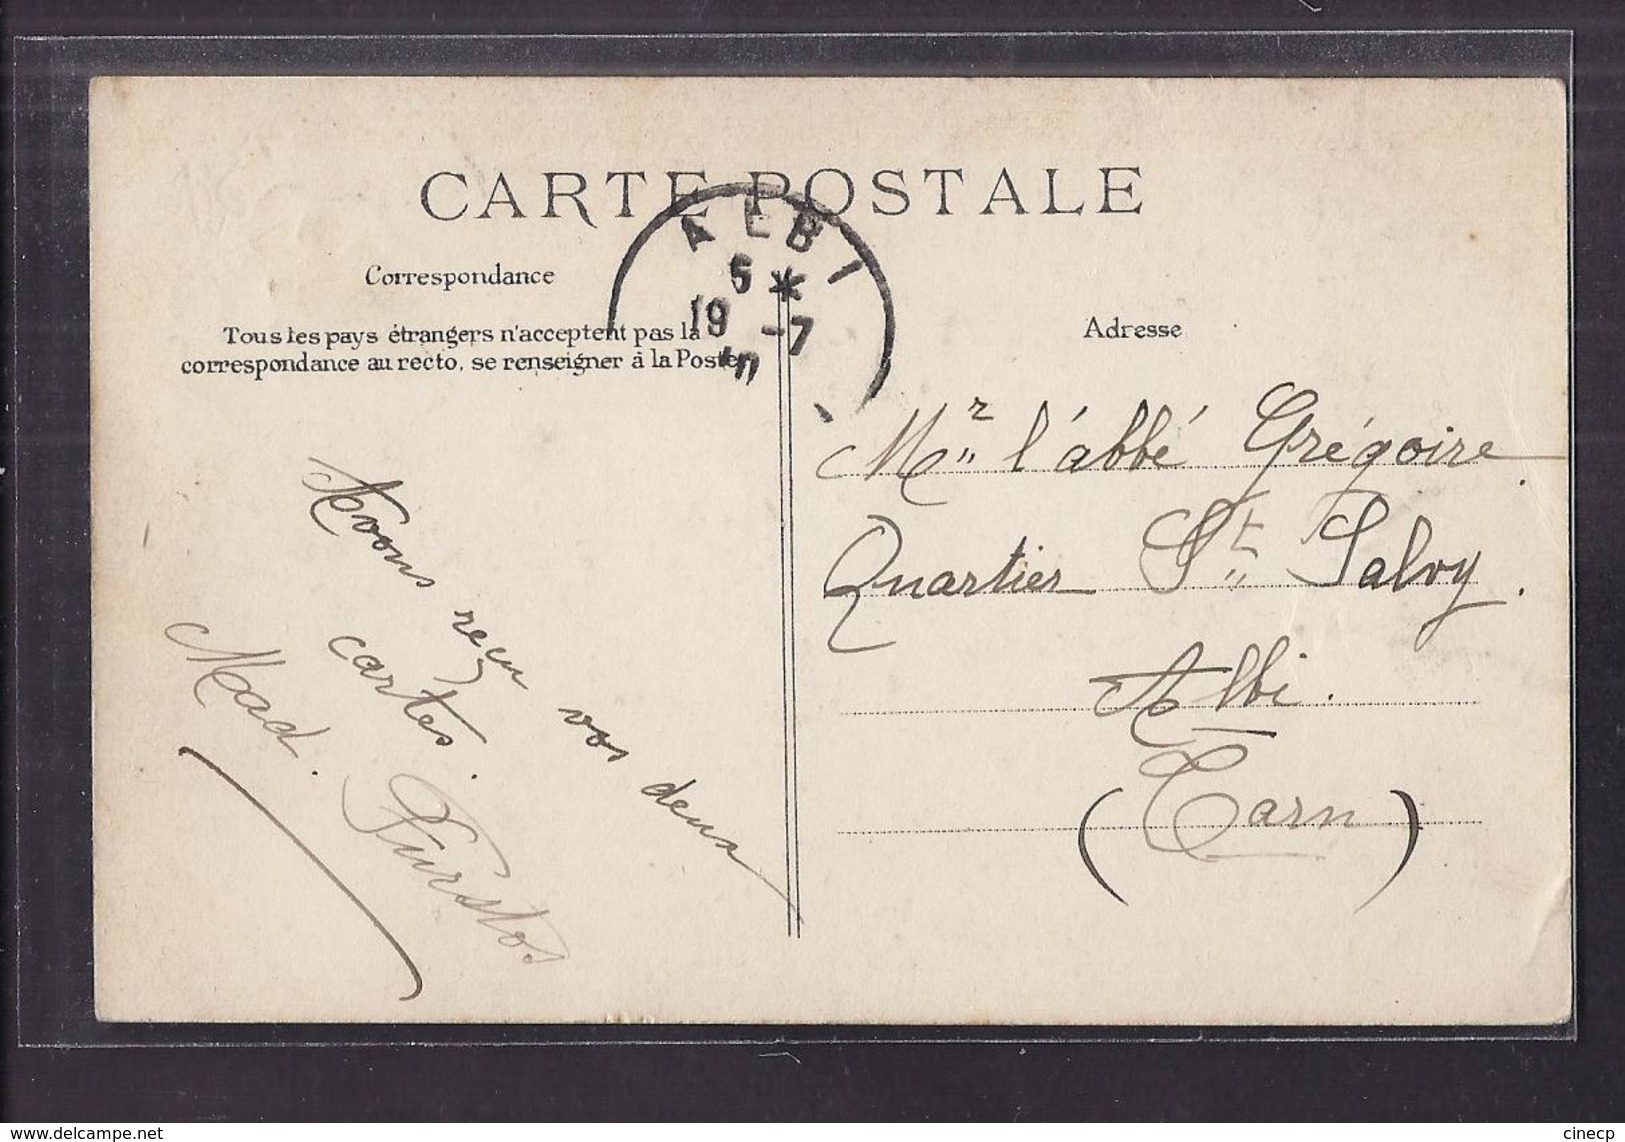 CARTE POSTALE
ALBI
5 *
19 -7
Correspondance
Tous les pays étrangers n'acceptent pas la
correspondance au recto, se renseigner à la Poste
Avons reçu vos deux
cartes.
Mad.
Adresse
Mr l'abbé Grégoire.
Quartier St Salvy.
Albi.
(Tarn)
www.delcampe.net
cinecp